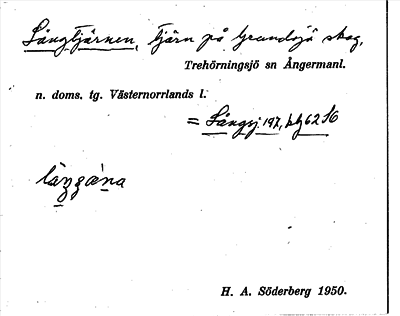 Långtjärnen, tjärn på Grundsjö skog,
Trehörningsjö sn Ångermanl.
n. doms. tg. Västernorrlands l.
= Långsj. 197, blg 62 S6
H. A. Söderberg 1950.